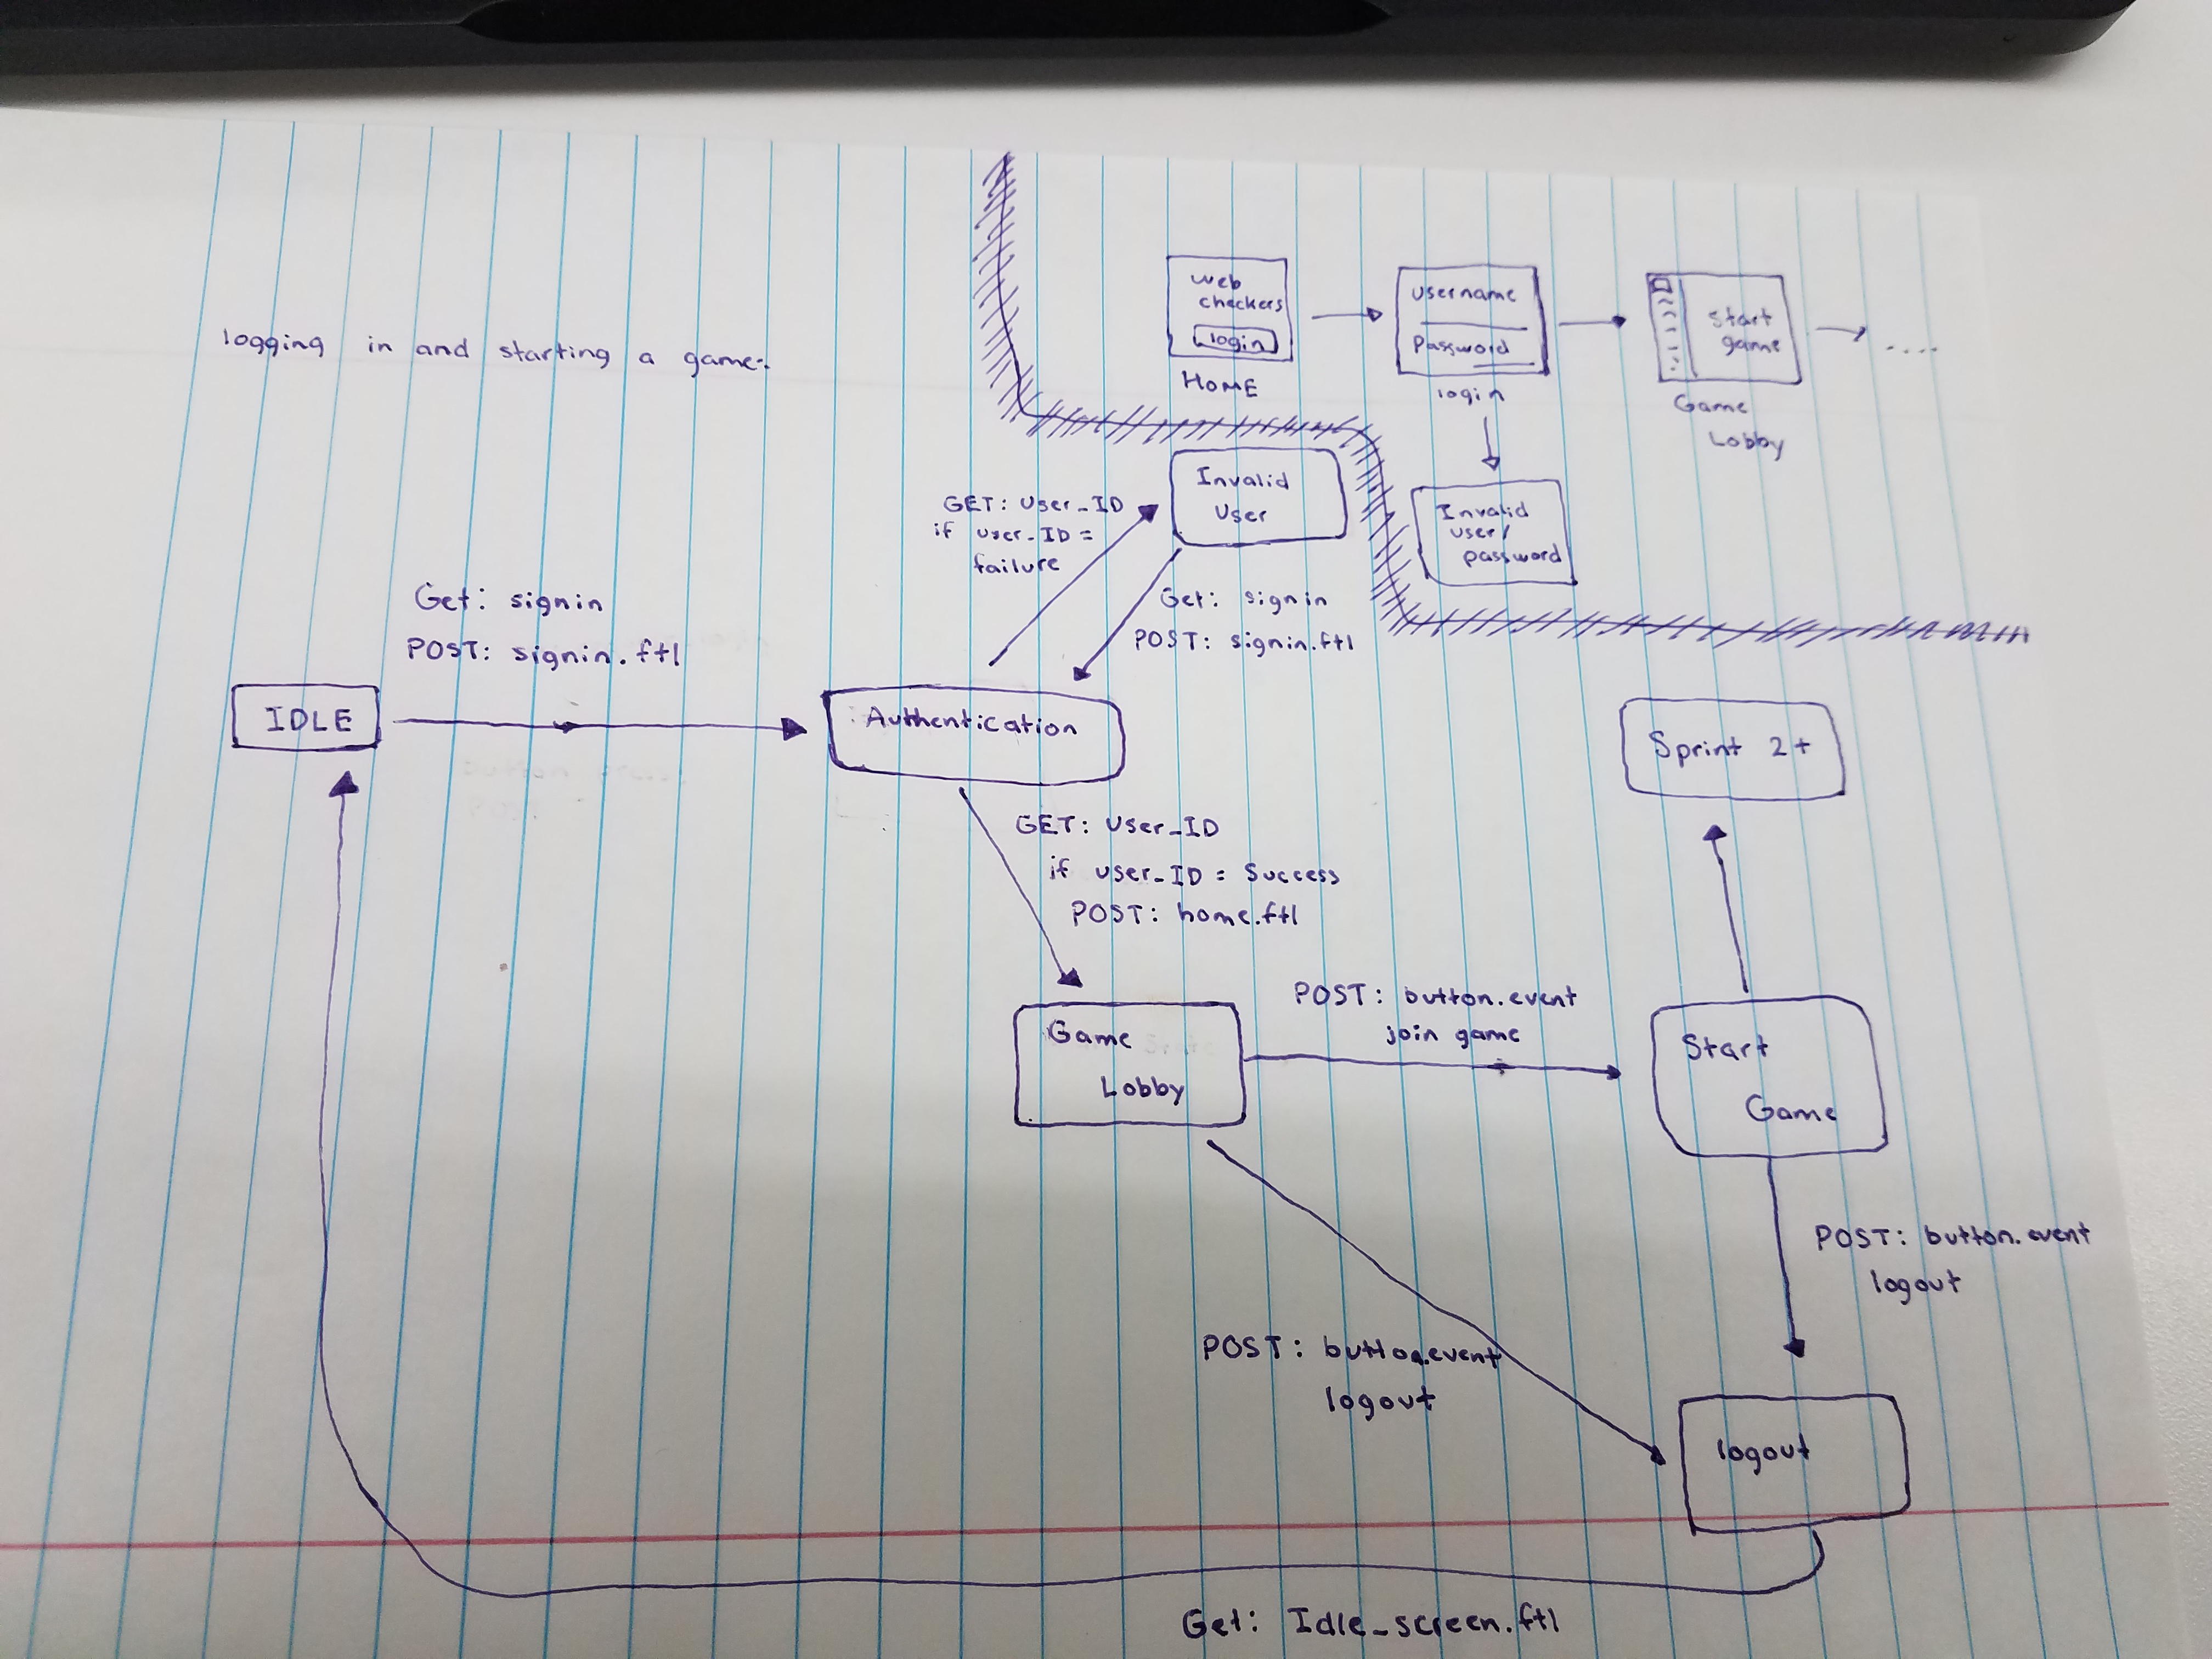 logging in and starting a game:
web
checkers
login
HOME
username
Password
login
start
game
Game
Lobby
....
Invalid
user/
password
Invalid
User
GET: User_ID
if user_ID =
failure
Get: signin
POST: signin.ftl
Get: signin
POST: signin.ftl
IDLE
Authentication
Sprint 2+
GET: User_ID
if user_ID = Success
POST: home.ftl
Game
Lobby
POST: button.event
join game
Start
Game
POST: button.event
logout
POST: button.event
logout
logout
Get: Idle_screen.ftl